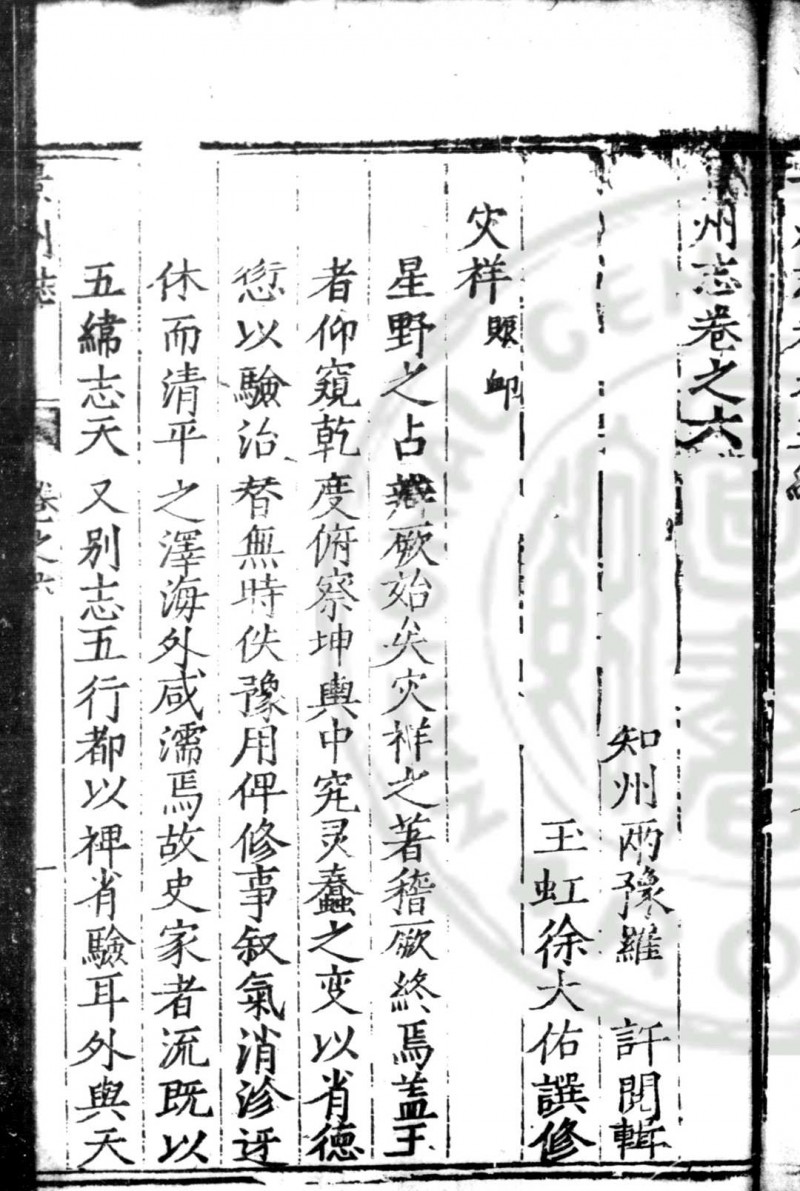 州志卷之六
知州兩豫羅　許閱輯
玉虹徐大佑譔修
灾祥 賑卹
星野之占辨厥始矣灾祥之著稽厥終焉蓋王
者仰窺乾度俯察坤輿中究灵蠢之变以省德
愆以驗治替無時佚豫用俾修事叙氣消沴迓
休而清平之澤海外咸濡焉故史家者流既以
五緯志天又别志五行都以裨省驗耳外與天
州誌
卷之六
一